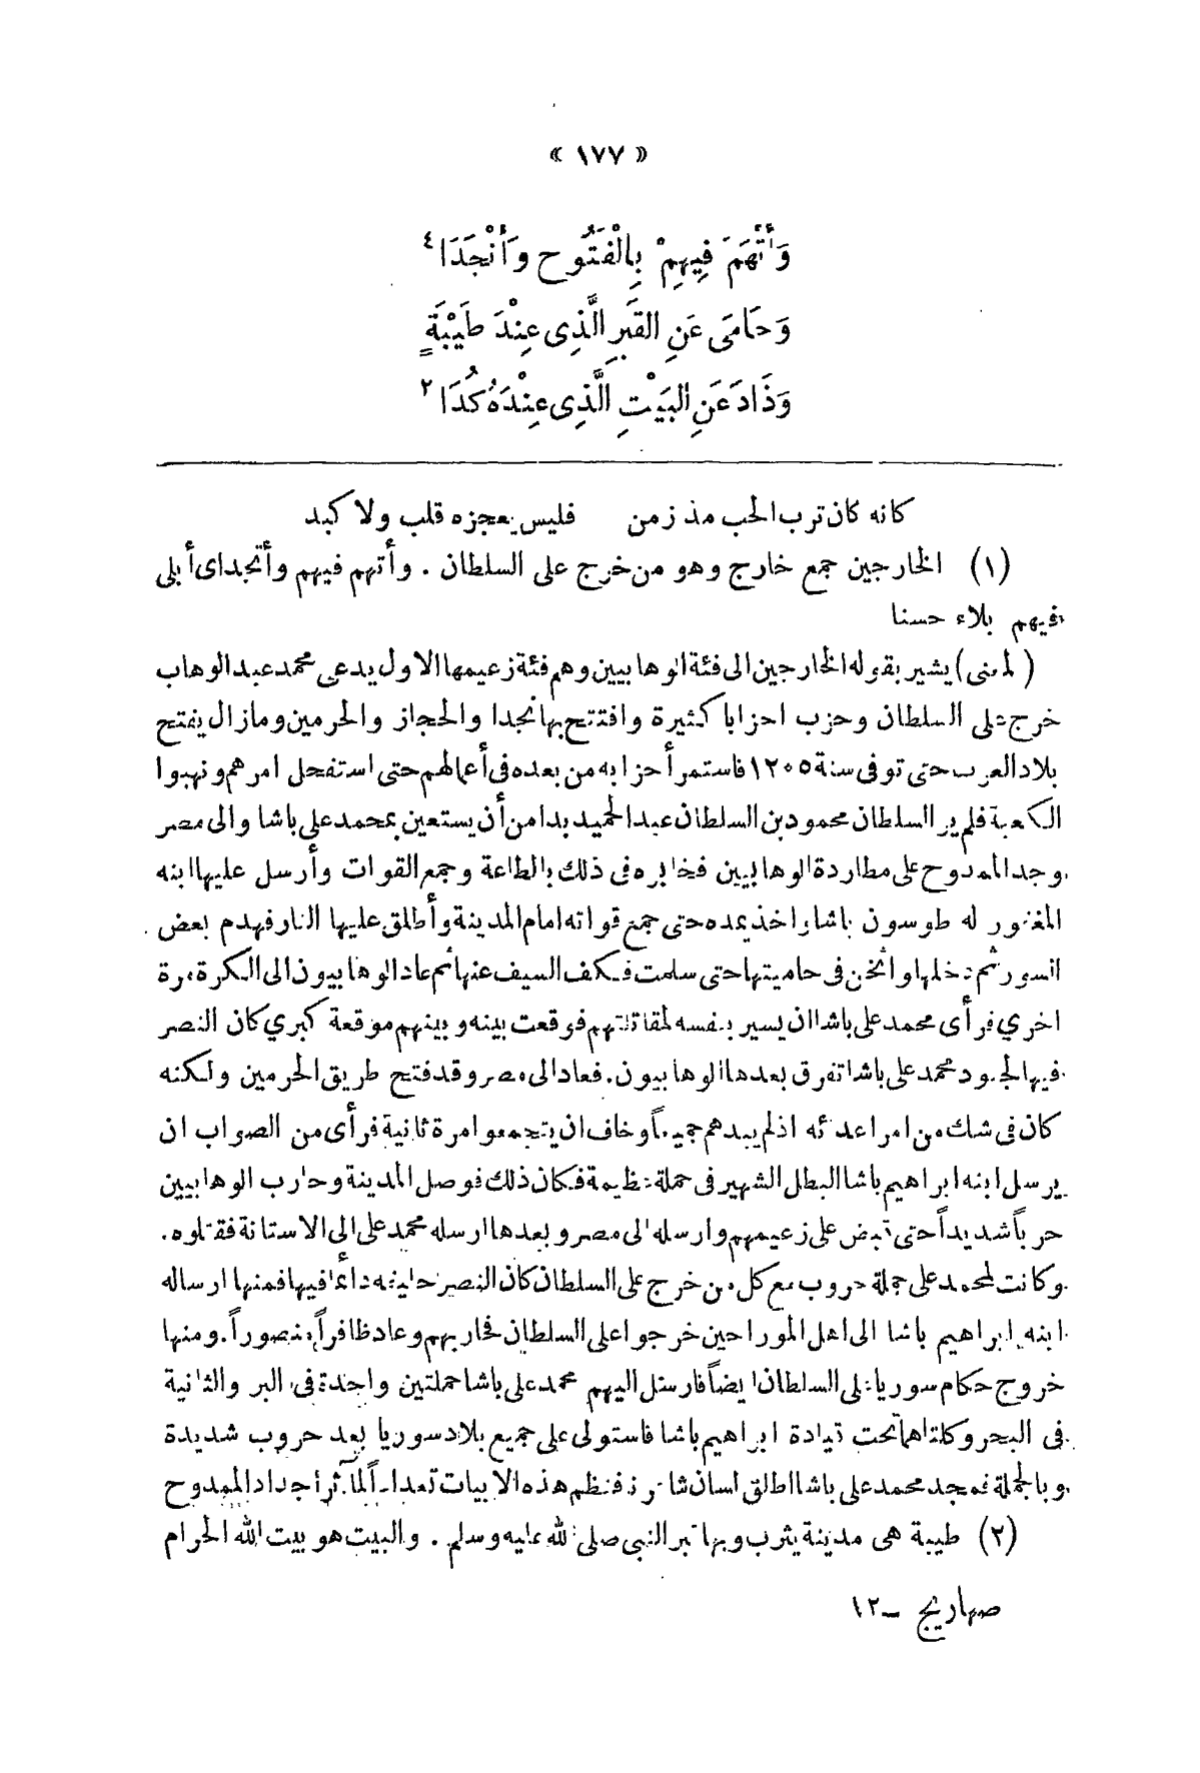 « ١٧٧ »
وَأَتْهَمَ فِيهِمْ بِالْفَتُوحِ وَأَنْجَدَا ٤
وَحَامَى عَنِ القَبرِ الَّذِى عِنْدَ طَيْبَةٍ
وَذَادَ عَنِ البَيْتِ الَّذِى عِنْدَهُ كُدَا ٢
كانه كان ترب الحب مذ زمن فليس يعجزه قلب ولا كبد
(١) الخارجين جمع خارج وهو من خرج على السلطان . وأتهم فيهم وأنجد اى أبلى
فيهم بلاء حسنا
(المعنى) يشير بقوله الخارجين الى فئة الوهابيين وهم فئة زعيمها الاول يدعى محمد عبد الوهاب
خرج على السلطان وحزب احزابا كثيرة وافتتح بها نجدا والحجاز والحرمين وما زال يفتح
بلاد العرب حتى توفى سنة ١٢٠٥ فاستمر أحزابه من بعده فى أعمالهم حتى استفحل امرهم ونهبوا
الكعبة فلم ير السلطان محمود بن السلطان عبد الحميد بدا من أن يستعين بمحمد على باشا والى مصر
وجد الممدوح على مطاردة الوهابيين فخابره فى ذلك بالطاعة وجمع القوات وأرسل عليها ابنه
المغفور له طوسون باشا واخذ يمده حتى جمع قواته امام المدينة وأطلق عليها النار فهدم بعض
السور ثم دخلها واثخن فى حاميتها حتى سلمت فكف السيف عنها ثم عاد الوهابيون الى الكرة مرة
اخري فرأى محمد على باشا ان يسير بنفسه لمقاتلتهم فوقعت بينه وبينهم موقعة كبري كان النصر
فيها لجنود محمد على باشا تفرق بعدها الوهابيون. فعاد الى مصر وقد فتح طريق الحرمين ولكنه
كان فى شك من امر اعدائه اذ لم يبدهم جميعاً وخاف ان يتجمعوا مرة ثانية فرأى من الصواب ان
يرسل ابنه ابراهيم باشا البطل الشهير فى حملة عظيمة فكان ذلك فوصل المدينة وحارب الوهابيين
حرباً شديداً حتى قبض على زعيمهم وارسله الى مصر وبعدها ارسله محمد على الى الاستانة فقتلوه.
وكانت لمحمد على جملة حروب مع كل من خرج على السلطان كان النصر حليفه دائما فيها فمنها ارساله
ابنه ابراهيم باشا الى اهل المورا حين خرجوا على السلطان فحاربهم وعاد ظافراً منصوراً. ومنها
خروج حكام سوريا على السلطان ايضاً فارسل اليهم محمد على باشا حملتين واحدة فى البر والثانية
فى البحر وكلتاهما تحت قيادة ابراهيم باشا فاستولى على جميع بلاد سوريا بعد حروب شديدة
وبالجملة فمجد محمد على باشا اطلق لسان شاعرنا فنظم هذه الابيات تعداداً لمآثر أجداد الممدوح
(٢) طيبة هى مدينة يثرب وبها قبر النبى صلى الله عليه وسلم . والبيت هو بيت الله الحرام
صهاريج ــ ١٢